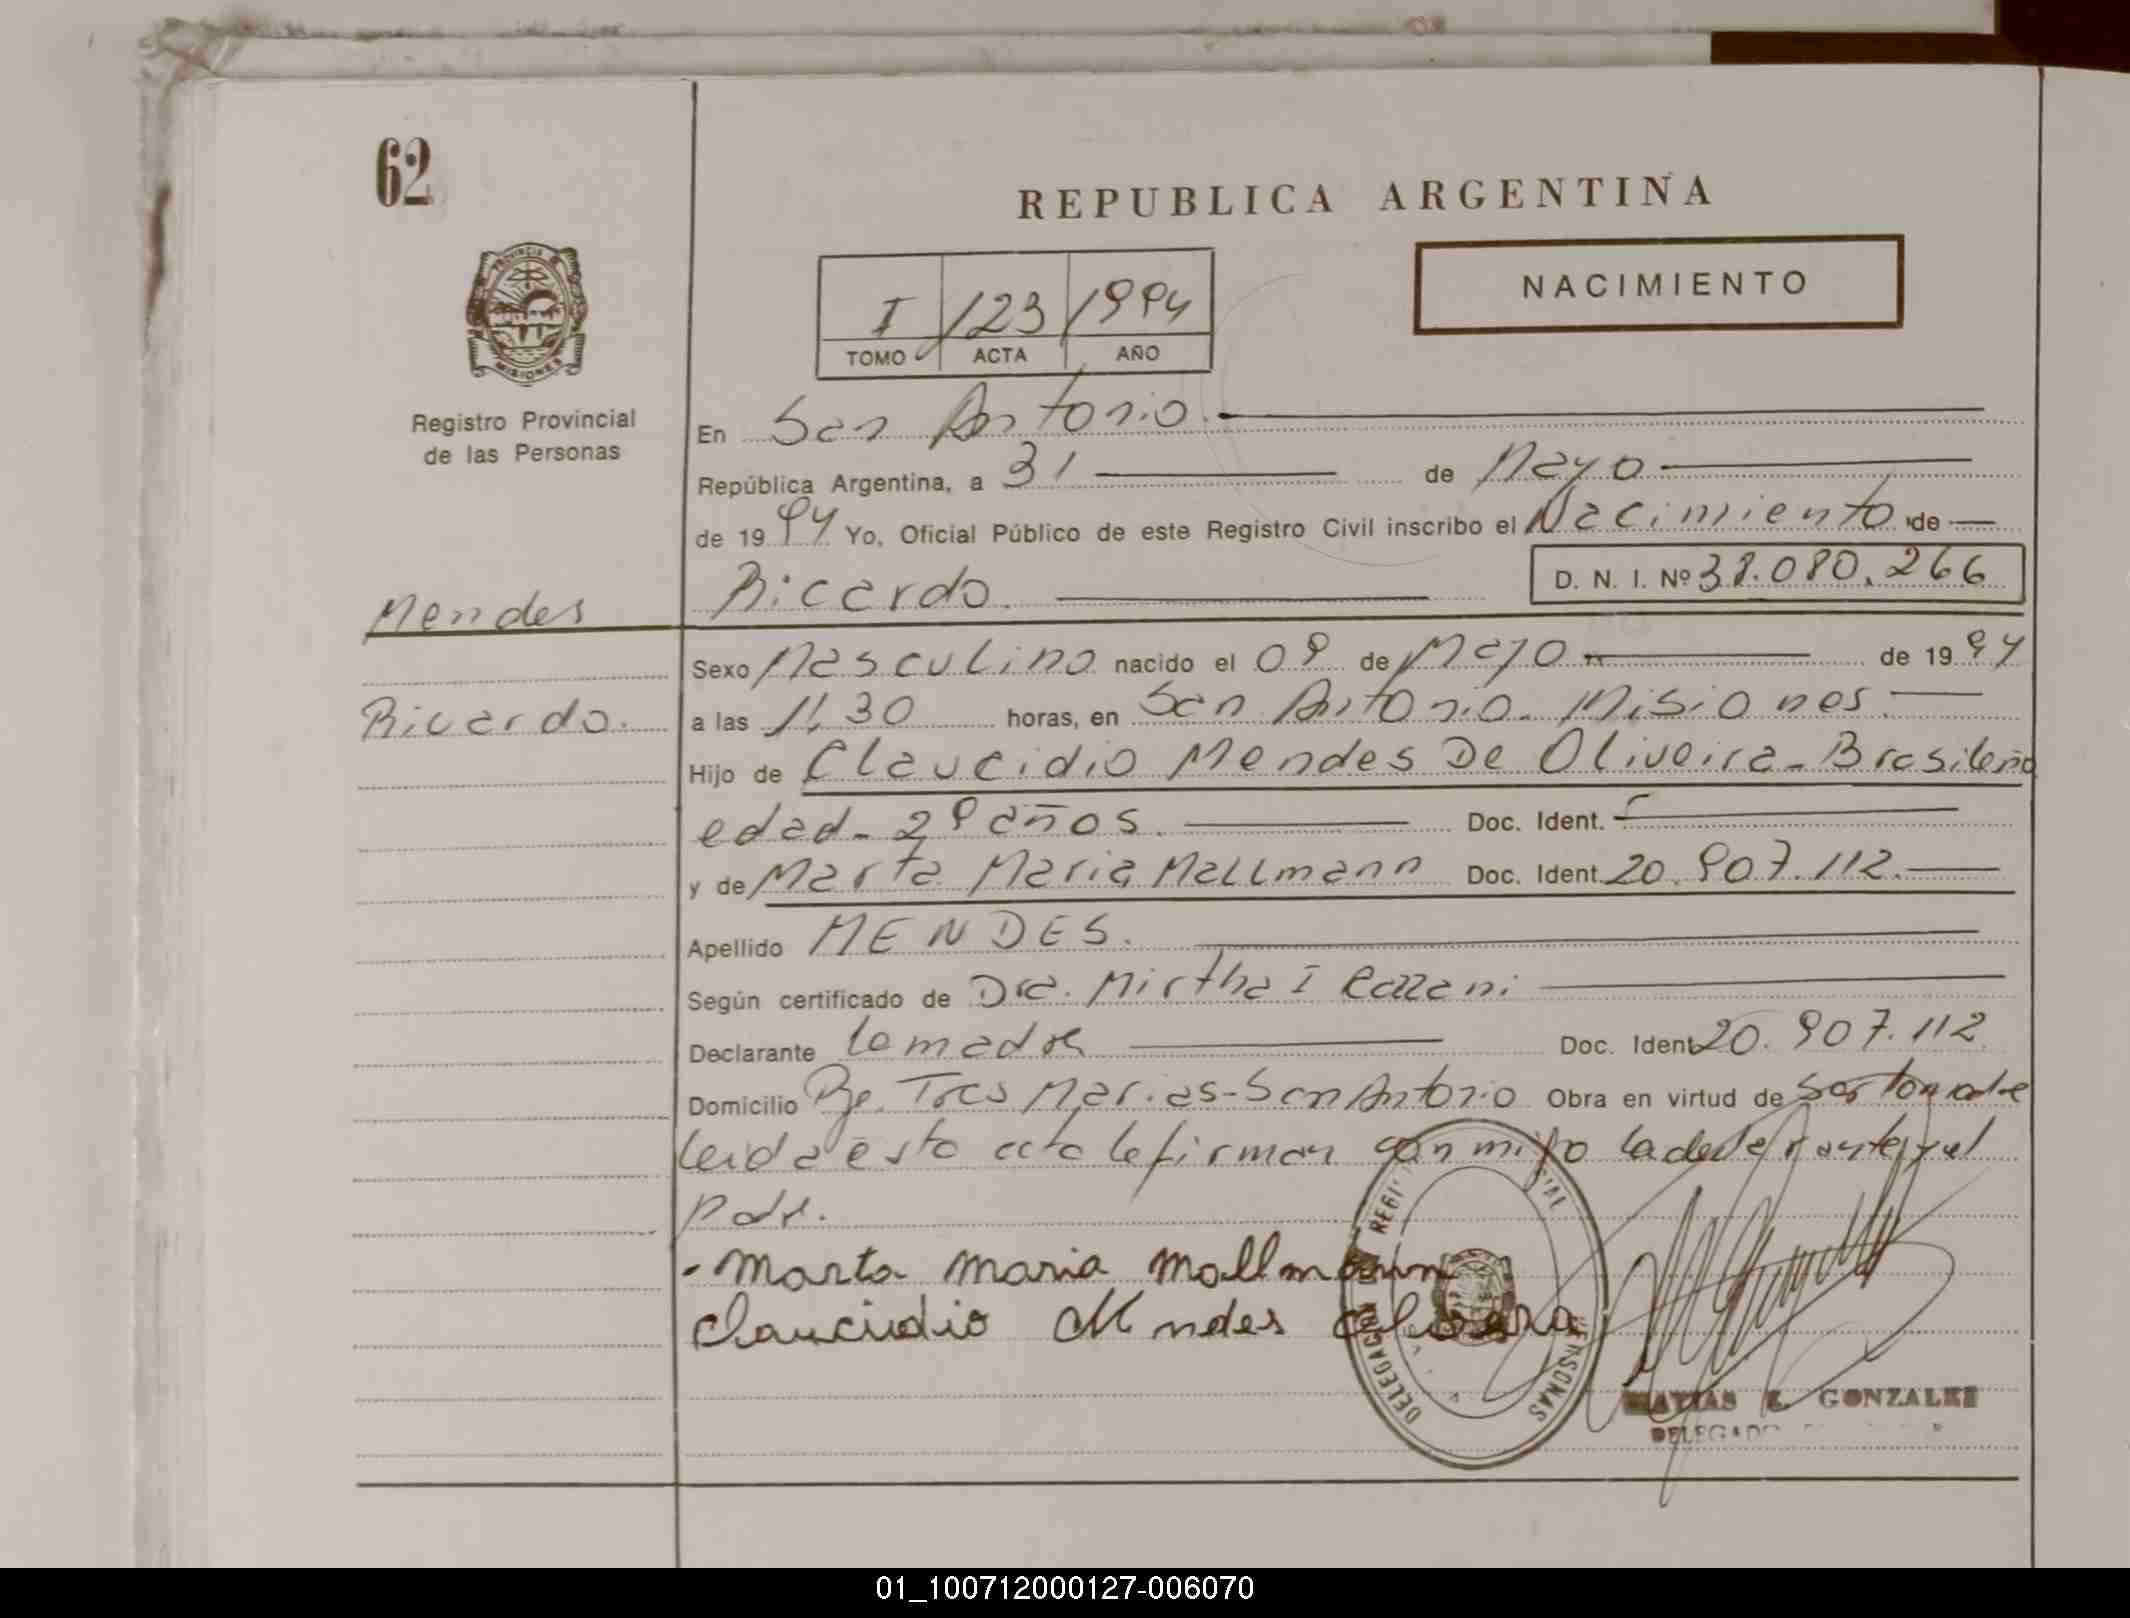 62
REPUBLICA ARGENTINA
NACIMIENTO
PROVINCIA DE
MISIONES
I 123 1994
TOMO ACTA AÑO
Registro Provincial
de las Personas
En San Antonio.
República Argentina, a 31 de Mayo
de 1994 Yo, Oficial Público de este Registro Civil inscribo el Nacimiento de
Mendes
Ricardo. D. N. I. Nº 38.080.266
Sexo Masculino nacido el 09 de Mayo de 1994
Ricardo.
a las 11,30 horas, en San Antonio. Misiones.
Hijo de Claucidio Mendes De Oliveira - Brasileño
edad - 29 años. Doc. Ident.
y de Marta Maria Mallmann Doc. Ident. 20.907.112.
Apellido MENDES.
Según certificado de Dra. Mirtha I
Declarante la madre Doc. Ident. 20.907.112
Domicilio Tres Marias - San Antonio Obra en virtud de
leida esta acta la firman conmigo la declarante y el
padre.
- Marta Maria Mallmann
Claucidio Mendes Olivera
DELEGACION REGI
PERSONAS
MATIAS E. GONZALEZ
DELEGADO
01_100712000127-006070